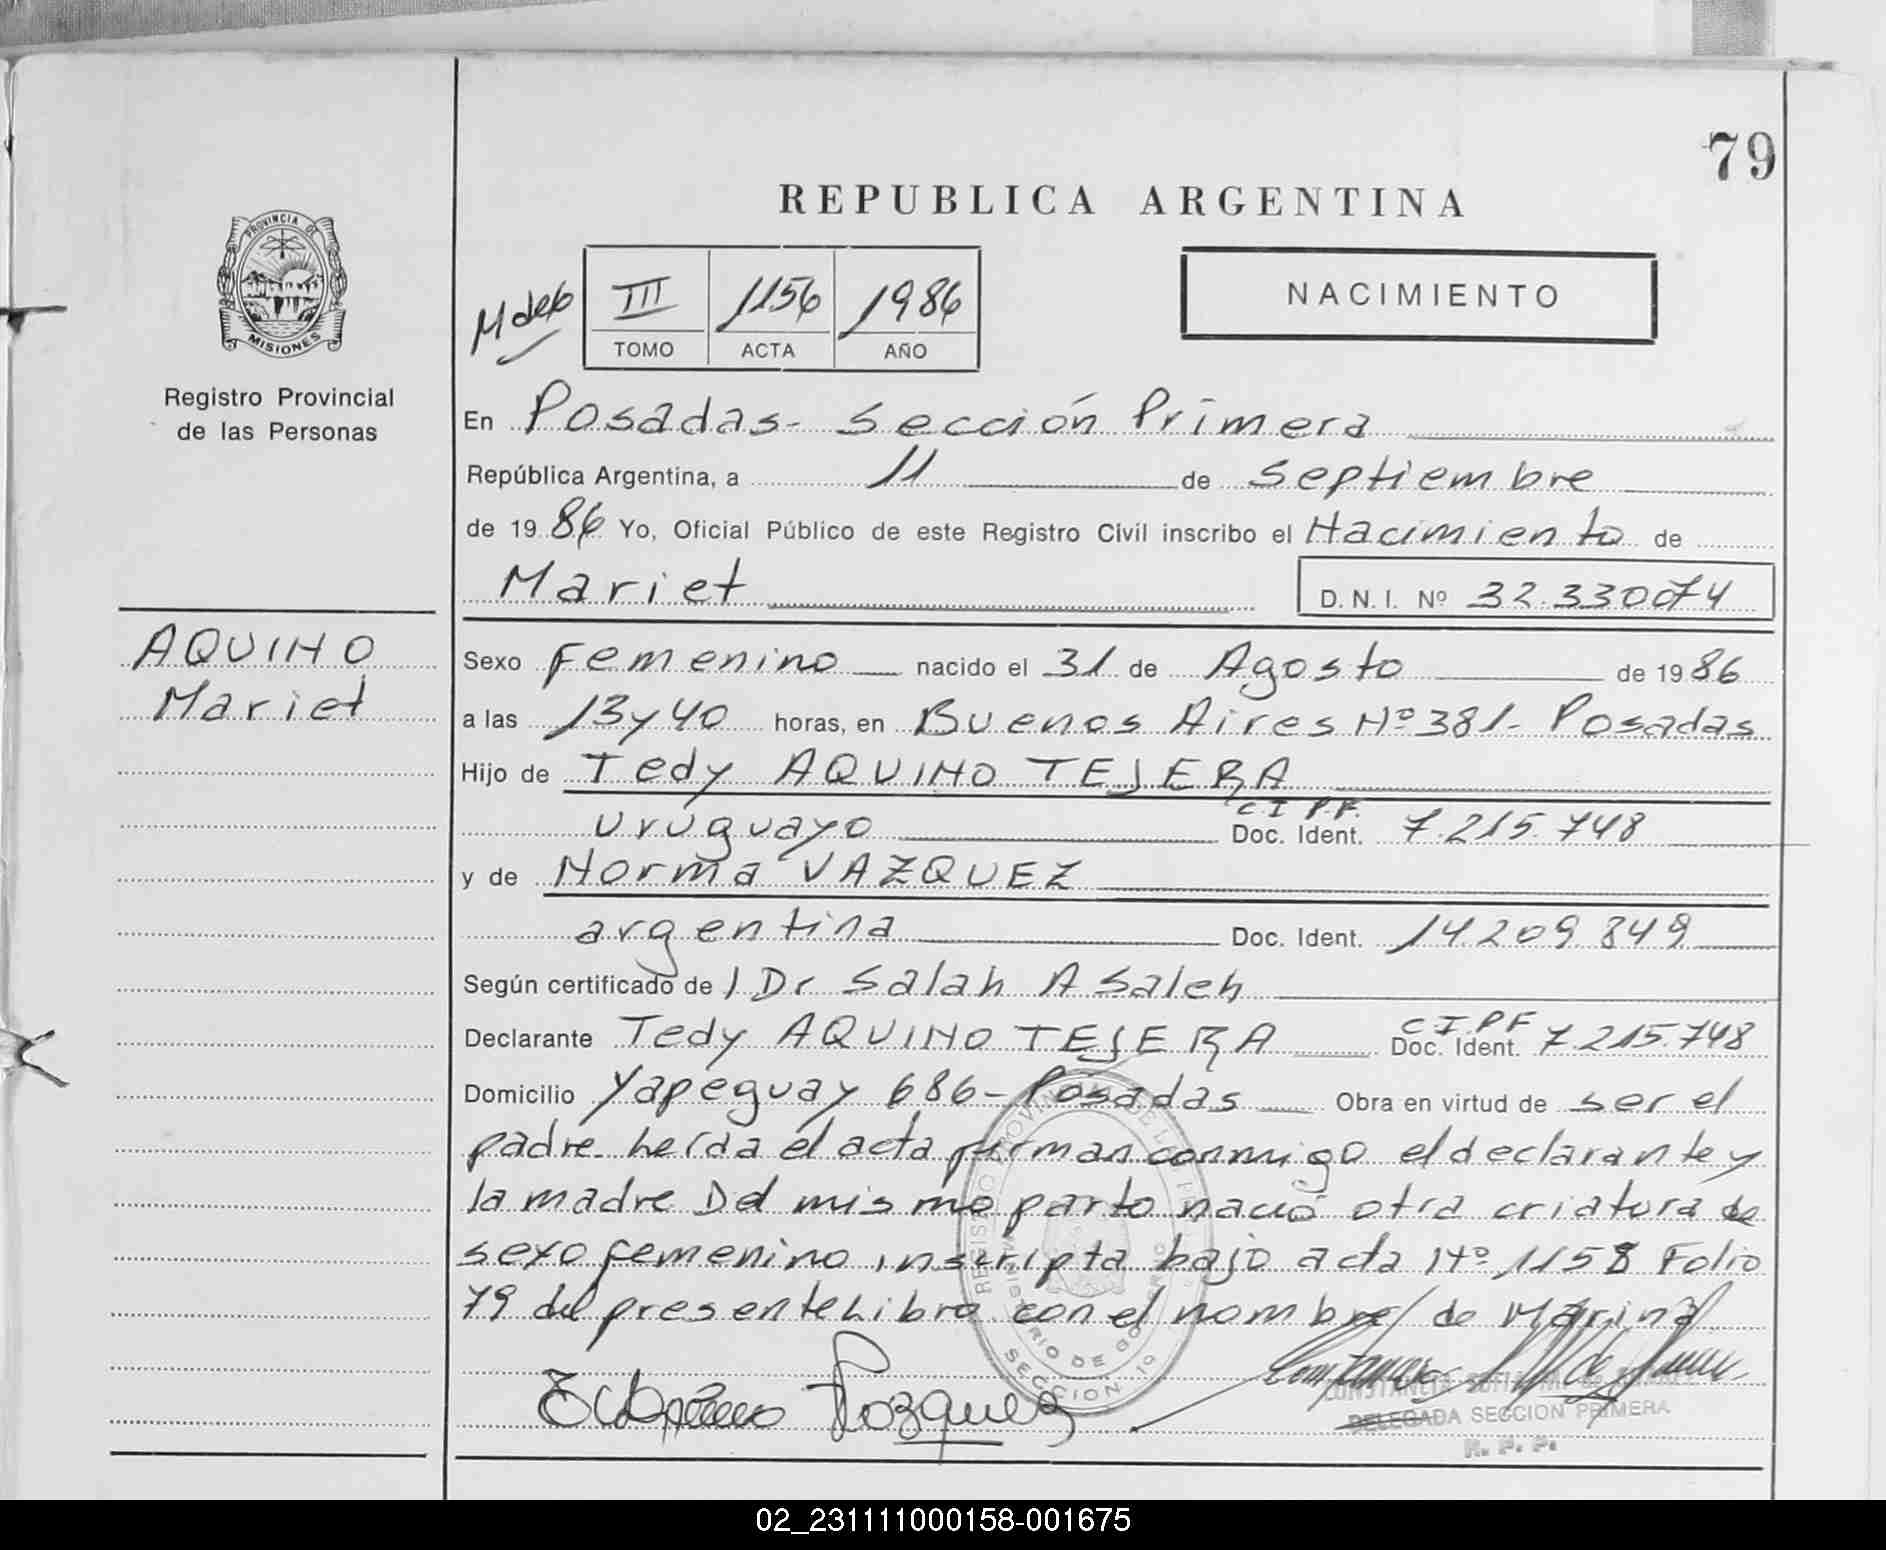 79
REPUBLICA ARGENTINA
PROVINCIA DE
MISIONES
Registro Provincial
de las Personas
III 1156 1986
TOMO ACTA AÑO
NACIMIENTO
En Posadas- Sección Primera
República Argentina, a 11 de Septiembre
de 1986 Yo, Oficial Público de este Registro Civil inscribo el Nacimiento de
Mariet D.N.I. Nº 32.330074
AQUINO
Mariet
Sexo Femenino nacido el 31 de Agosto de 1986
a las 13 y 40 horas, en Buenos Aires Nº 381- Posadas
Hijo de Tedy AQUINO TEJERA
uruguayo C I P.F. Doc. Ident. 7.215.748
y de Norma VAZQUEZ
argentina Doc. Ident. 14.209.849
Según certificado de / Dr Salah A Saleh
Declarante Tedy AQUINO TEJERA C.I.PF Doc. Ident. 7.215.748
Domicilio Yapeguay 686- Posadas Obra en virtud de ser el
padre. heida el acta firman conmigo el declarante y
la madre Del mismo parto nació otra criatura de
sexo femenino inscripta bajo acta Nº 1158 Folio
79 del presente Libro con el nombre de Marina
Vazquez
DELEGADA SECCION PRIMERA
R. P. P.
SECCION 1º
02_231111000158-001675